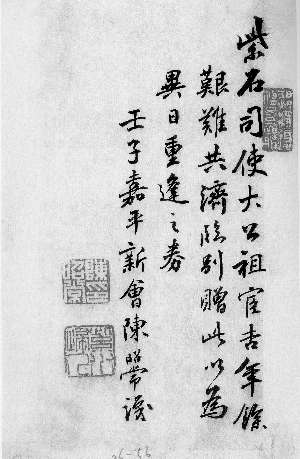 紫石司使大公祖宦吉年餘
艱難共濟臨別贈此以為
異日重逢之券
壬子嘉平新會陳昭常識